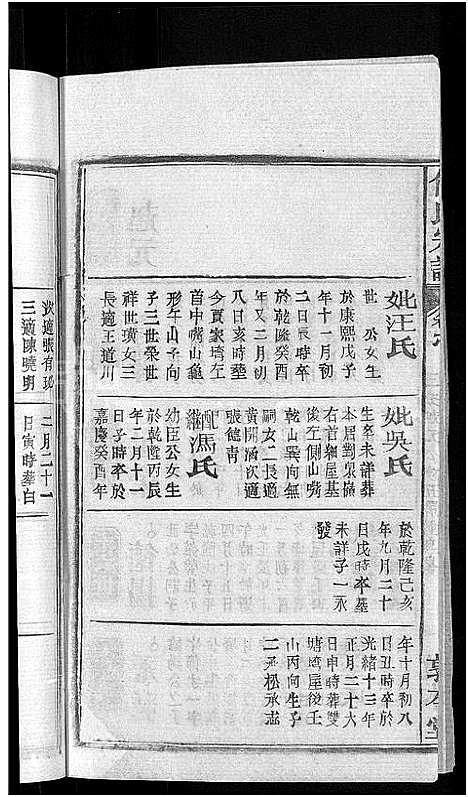 氏宗譜
妣汪氏
世 公女生
於康熙戊子
年十一月初
二日長時卒
於乾隆癸酉
年又二月初
八日亥時塟
今賈家塆左
首中嘴山龜
形午山子向
子三世榮世
祥世璜女三
長適王道川
次適張有
三適陳曉明
妣吳氏
生卒未詳葬
本居對泉協
右首細屋基
後左側山嘴
乾山巽向無
嗣女二長適
黃開涵次適
張德青
繼馮氏
幼臣公女生
於乾隆丙辰
年二月十一
日子時卒於
嘉慶癸酉年
二月二十一
日寅時葬白
於乾隆己亥
年九月二十
日戌時卒墓
未詳子一永
發
年十月初八
日丑時卒於
光緒十三年
正月二十六
日申時葬雙
塘塆屋後壬
山丙向生子
二承松承志
敦本堂